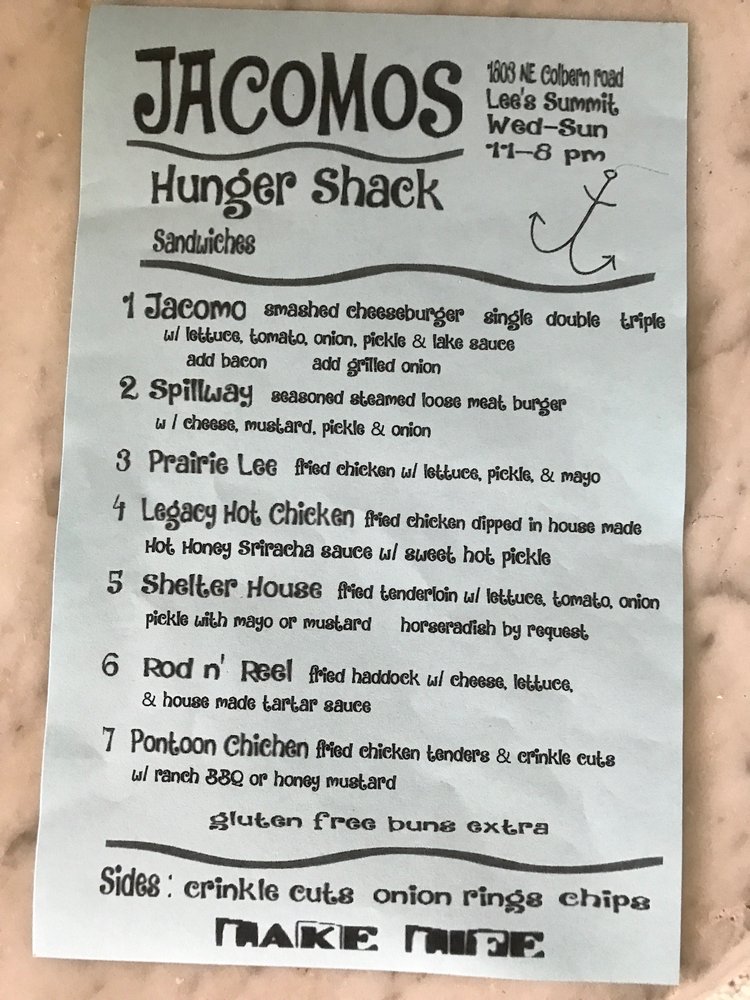 JACOMOS
1803 NE Colbern road
Lee's Summit
Wed-Sun
11-8 pm
Hunger Shack
Sandwiches
1 Jacomo smashed cheeseburger single double triple
w/ lettuce, tomato, onion, pickle & lake sauce
add bacon add grilled onion
2 Spillway seasoned steamed loose meat burger
w / cheese, mustard, pickle & onion
3 Prairie Lee fried chicken w/ lettuce, pickle, & mayo
4 Legacy Hot Chicken fried chicken dipped in house made
Hot Honey Sriracha sauce w/ sweet hot pickle
5 Shelter House fried tenderloin w/ lettuce, tomato, onion
pickle with mayo or mustard horseradish by request
6 Rod n' Reel fried haddock w/ cheese, lettuce,
& house made tartar sauce
7 Pontoon Chichen fried chicken tenders & crinkle cuts
w/ ranch BBQ or honey mustard
gluten free buns extra
Sides: crinkle cuts onion rings chips
LAKE LIFE